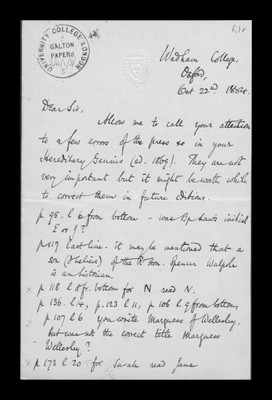 UNIVERSITY COLLEGE LONDON
GALTON
PAPERS
Wadham College,
Oxford,
Oct 22nd
Dear Sir,
Allow me to call your attention
to a few errors of the press &c in your
Hereditary Genius (ed. 1869). They are not
very important but it might be worth while
to correct them in future Editions.
p 98. l 6 from bottom - was Bp Law's initial
E or J?
p 117 last line. it may be mentioned that a
son (Italics) of the Rt Hon. Spencer Walpole
is an historian.
p 118 l 8 fr. bottom for N read N.
p 136. l 4, p. 123 l 11, p 106 l 9 from bottom,
p 107 l 6 you write Marquess of Wellesley,
but was not the correct title Marquess
Wellesley?
p 178 l 20 for Sarah read Jane